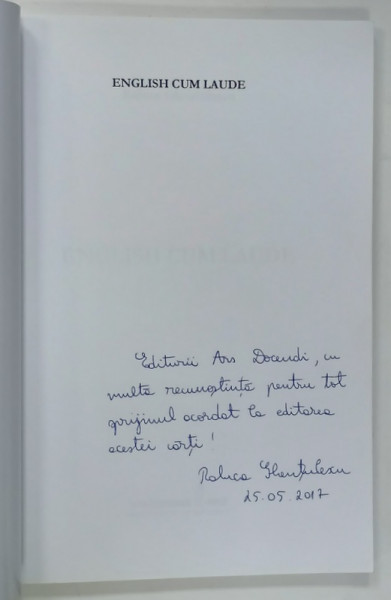 ENGLISH CUM LAUDE
ENGLISH CUM LAUDE
Editurii Ars Docendi, cu
multă recunoştinţă pentru tot
sprijinul acordat la editarea
acestei cărţi!
Raluca Ghenţulescu
25.05.2017